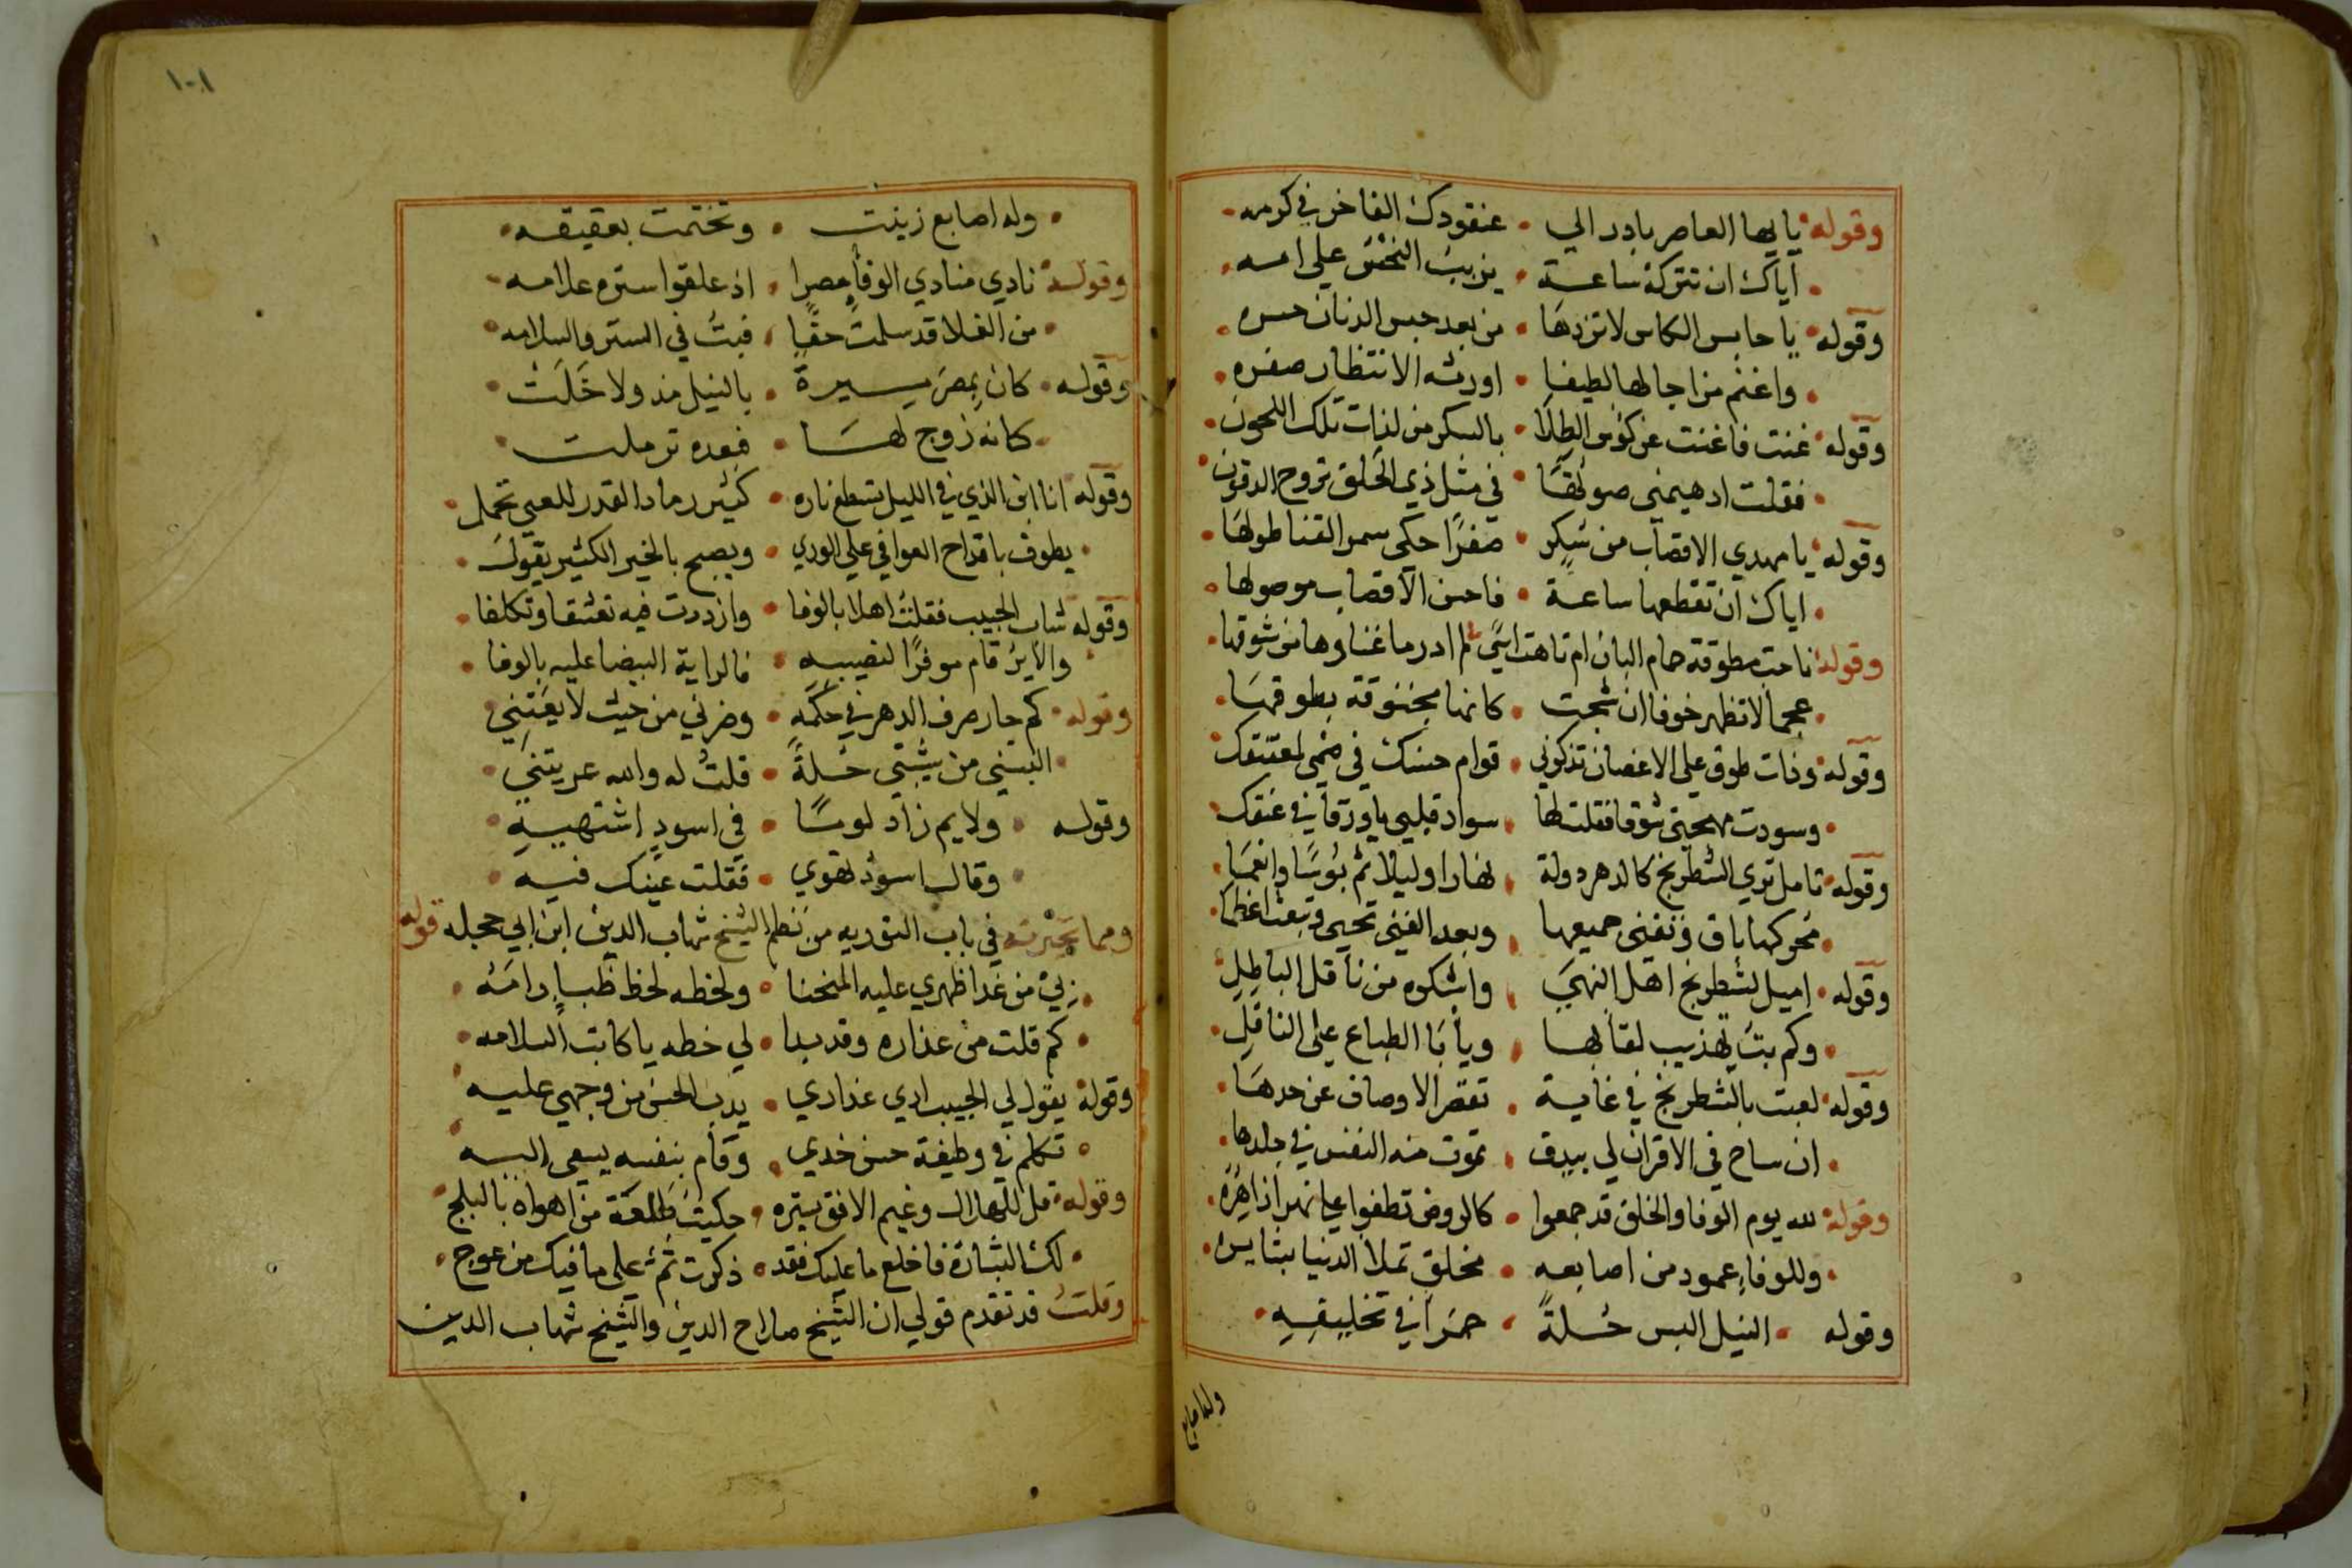 وقوله يا ايها العاصر بادر الي • عنقودك الفاخر في كرمه
اياك ان تتركه ساعة • يزبب النخس علي امه
وقوله • يا حابس الكاس لا تزدها • من بعد حبس الدنان حسره
واغنم مزاجا لها لطيفا • اورثه الانتظار صفره
وقوله غنت فاغنت عن كؤس الطلا • بالسكر من لذات تلك اللحون
فقلت اذ هيمني صوتها • في مثل ذي الحلق تروح الدقون
وقوله يا مهدي الاقصاب من سكر • صفرا حكي سمر القنا طولها
اياك ان تقطعها ساعة • فاحسن الاقصاب موصولها
وقوله ناحت مطوقة حمام البان ام تاهت لم ادر ما غناوها من شوقها
عجما لا تظهر خوفا ان شجت • كانها مخنوقة بطوقها
وقوله وذات طوق علي الاغصان تذكرني • قوام حسنك في ضمي لمعتنقك
وسودت مهجتي شوقا فقلت لها • سواد قلبي يا ورقا في عنقك
وقوله تامل تري الشطرنج كالدهر دولة • نهارا وليلا ثم بؤسا وانعما
محركها باق وتفني جميعها • وبعد الفني تحيي وتبعث اعظما
وقوله • اميل لشطرنج اهل النهي • واشكوه من ناقل الباطل
وكم بت تهذيب لقابها • ويابا الطباع علي الناقل
وقوله لعبت بالشطرنج في غاية • تقصر الاوصاف عن حدها
ان ساح في الاقران لي بيدق • تموت منه النفس في جلدها
وقوله لله يوم الوفا والخلق قد جمعوا • كالروض تطفوا علي نهر ازاهره
وللوفاء عمود من اصابعه • مخلق تملا الدنيا بشايره
وقوله • النيل البس حلة • حمرا في تخليقه
وله اصابع
١٠١
وله اصابع زينت • وتختمت بعقيقه
وقوله نادي منادي الوفا بمصرا • اذ علقوا ستره علامه
من الغلا قد سلمت حقا • فبت في الستر والسلامه
وقوله • كان بمصر سيرة • بالنيل مذ ولا خلت
كانه زوج لها • فبعده ترملت
وقوله انا ابن الذي في الليل تسطع ناره • كثير رماد القدر للعبي تحمل
يطوف باقداح العوافي علي الوري • ويصبح بالخير الكثير يقول
وقوله شاب الحبيب فقلت اهلا بالوفا • وازددت فيه تعشقا وتكلفا
والاير قام موفرا لنصيبه • فالراية البيضا عليه بالوفا
وقوله • كم جار صرف الدهر في حكمه • وضرني من حيث لا يعتني
البسني من شيبتي حلة • قلت له والله عريتني
وقوله • ولايم زاد لوما • في اسود اشتهيه
وقال اسود تهوي • فقلت عينك فيه
ومما في باب التوريه من نظم الشيخ شهاب الدين ابن ابي حجله قوله
لي من غدا ظهري عليه المنحنا • ولحظه لحظ ظبا رامه
كم قلت من عذاره وقد بدا • لي خطه يا كاتب السلامه
وقوله يقول لي الحبيب اري عذاري • يدب الحسن من وجهي عليه
تكلم في وظيفة حسن خدي • وقام بنفسه يسعي اليه
وقوله • قل للهلال وغيم الافق يستره • حكيت طلعة من اهواه بالبلج
لك البشارة فاخلع ما عليك فقد • ذكرت ثم علي ما فيك من عوج
وقلت قد تقدم قولي ان الشيخ صلاح الدين والشيخ شهاب الدين